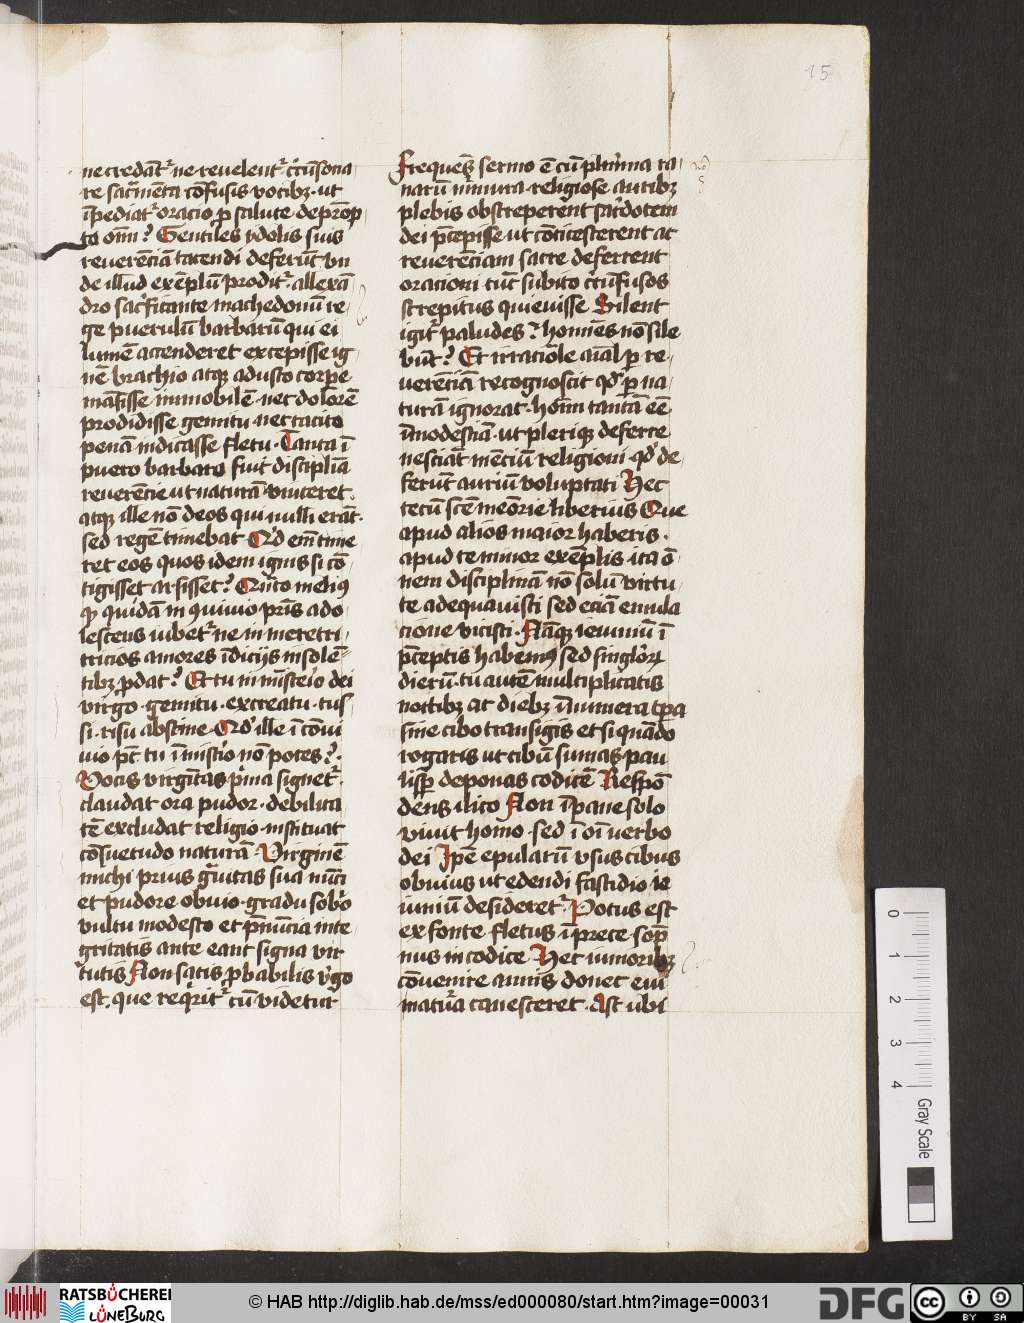 15
ne credāt᷑ ne revelent᷑ cͥcūsona
re sacͣmēta cōfusis vocibꝫ · ut
īpediat᷑ oracio ꝓ salute deprōp
ta oīm? Gentiles ydolis suis
reverēciam tacendi deferūt vn
de illud exēplū prodit᷑ · allexā
dro sacͥficante machedonū re
ge puerulū barbarū qui ei
lumē accenderet excepisse ig
nē brachio atqꝫ adusto corpe
māsisse immobilē · nec dolorē
prodidisse gemitu · nec tacito
penam indicasse fletu · Tanta ī
puero barbaro fuit discipliā
reverēcie ut naturā vinceret ·
atqꝫ ille nō deos qui nulli erāt ·
sed regē timebat Qͥd em̄ time
ret eos quos idem ignis si cō
tigisset arsisset? Qn̄to melius
qͣꝫ quidā in quiuio pr̄is ado
lescens iubet᷑ ne in meretri
tricios amores īdicijs insolē
tibꝫ ꝓdat? Et tu in mīsterio dei
virgo · gemitu · excreatu · tus
si · risu abstine Qͩ ille ī cōui
uio pt̄ tu ī mistͥio nō potes? ·
Vocis virgītas pͥma signet᷑ ·
claudat ora pudor · debilita
tē excludat religio · instituat
cōsuetudo naturā · Virginē
michi prius gͣuitas sua nūci
et pudore obuio · gradu sobͥo
vultu modesto et p̄nūcia inte
gritatis ante eant signa vir
tutis Non satis ꝓbabilis vͥgo
est · que reqͥrit᷑ cū videtur
Frequēs sermo ē cū plurīma ra
narū mͬmura · religiose auribꝫ
plebis obstreperent sac͛dotem
dei p̄cepisse ut cōticescerent ac
reverēciam sacre deferrent
orationi tūc subito cͥcūfusos
strepitus quieuisse Silent
igit᷑ paludes? homīes nō sile
būt? Et irraciōle aīal ꝑ re
verēciā recognoscit qͩ ꝑ na
turā ignorat · hoīm tantā eē
īmodestiā · ut pleriqꝫ deferre
nesciāt mēciū religioni · qͩ de
ferūt aurium voluptati Hec
tecū scē meōrie liberius Que
apud alios maior haberis ·
apud te minor exēplis · ita ō
nem disciplinā nō solū virtu
te adequavisti sed eciā emula
cione vicisti · Nāqꝫ ieiuniū ī
p̄ceptis habemꝰ sed singloꝝ
dierū · tu autē multiplicatis
noctibꝫ ac diebꝫ īnumera tp̄a
sine cibo transigis et si quādo
rogaris ut cibū sumas pau
lisꝑ deponas codicē Respō
dens ilico Non ī pane solo
vivit homo · sed ī oī verbo
dei Ipē epularū vsus cibus
obuius ut edendi fastidio ie
iuniū desideret᷑ · Potus est
ex fonte fletus ī prece · sop
nus in codice Hec iunioribꝫ
cōvenire annis donec eui
matura canesceret · Ast ubi
0
1
2
3
4
Gray Scale
RATSBÜCHEREI
LÜNEBURG
© HAB http://diglib.hab.de/mss/ed000080/start.htm?image=00031
DFG
CC
BY SA